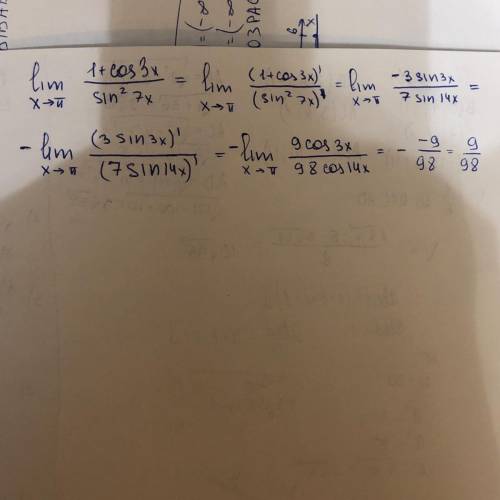 = (-8
= (-8
ОЗРАС
lim x→π (1+cos3x)/(sin² 7x) = lim x→π (1+cos3x)'/(sin² 7x)' = lim x→π (-3 sin3x)/(7 sin 14x) =
- lim x→π (3 sin3x)'/(7 sin 14x)' = - lim x→π (9 cos3x)/(98 cos14x) = - (-9)/98 = 9/98